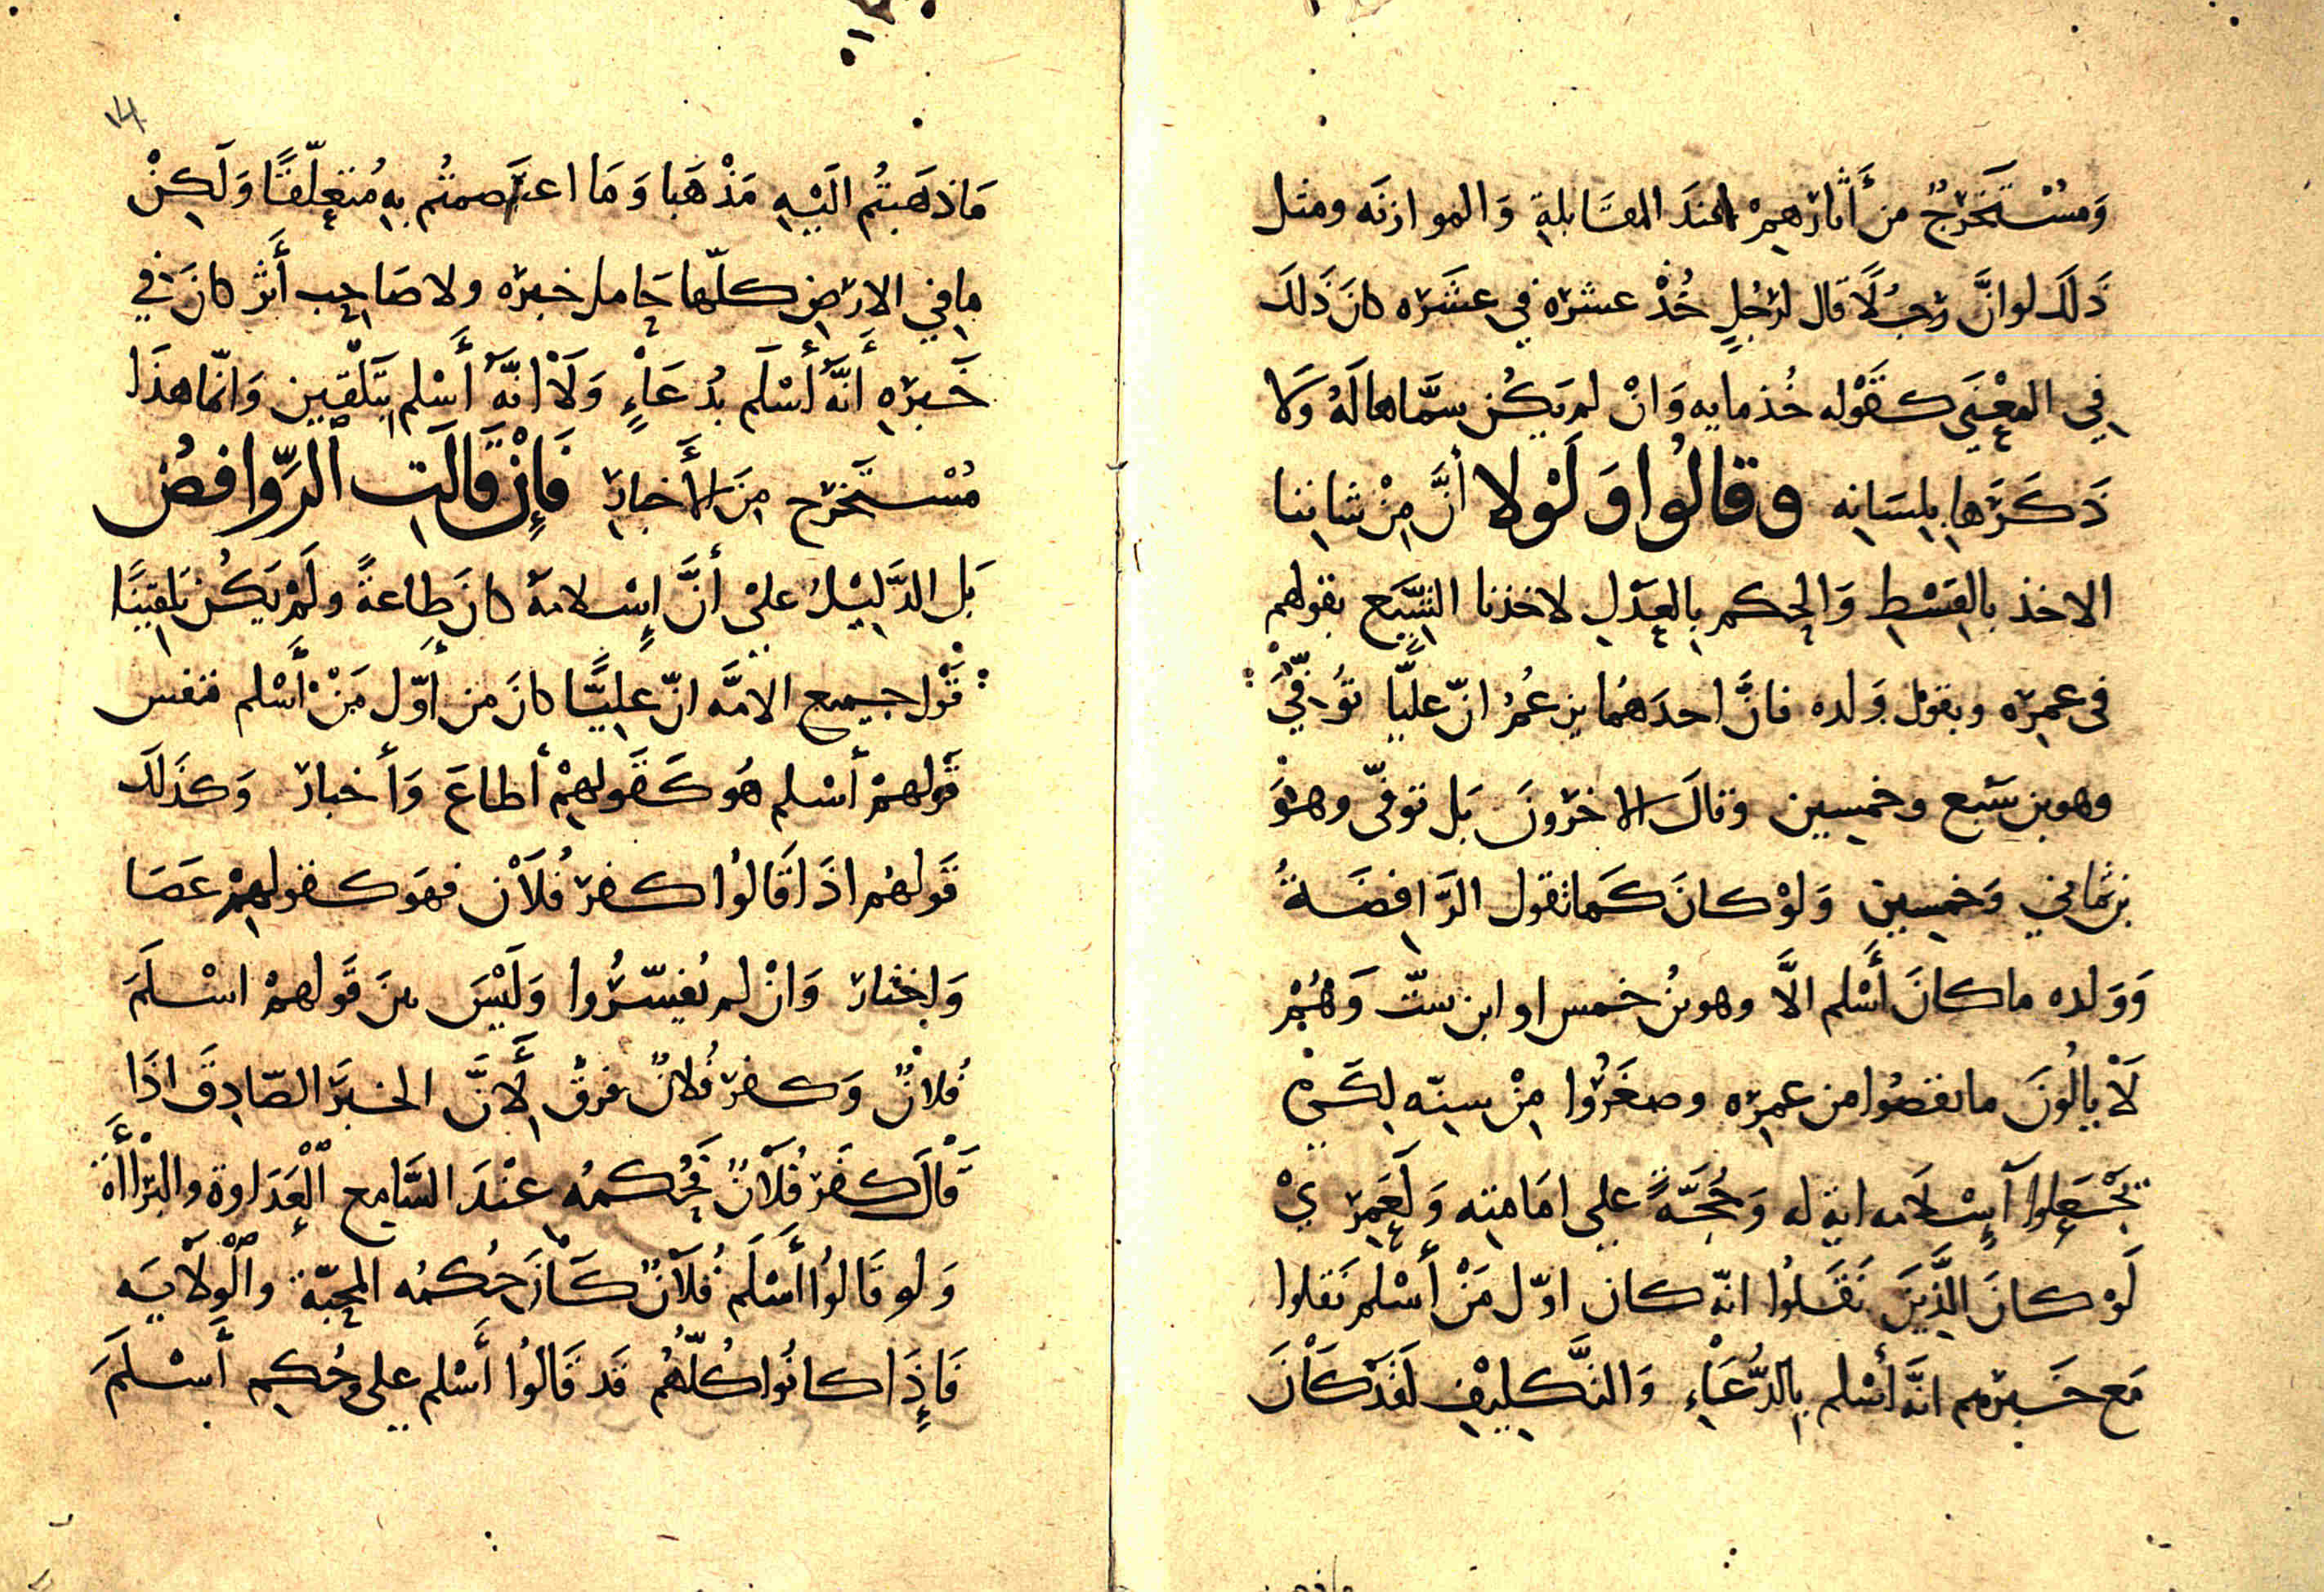 وَمُسْتَخرَجٌ من أَثارهِمْ عندَ المقَابلةِ وَالموازنَه ومثل
ذَلكَ لوانَّ رجُلًا قال لرَجُلٍ خُذْ عشرَه في عشَرَه كانَ ذَلكَ
فِي المعْنَى كقَوْله خُذ مايه وَانْ لم يَكُن سمَّاها لَهُ وَلا
ذَكَرَها بِلِسَانِه وقالُوا وَلَوْلا أنَّ مِنْ شانِنا
الاخذ بالقِسْطِ وَالحكم بِالعَدْلِ لاخذنا الشِّيَع بقولهم
فى عمرِه وبقوْل وَلده فانَّ احدَهُما يزعُمُ انّ عليًّا تُوُفِّيَ
وهو بن سَبع وخمسِين وقالَ الاخرُونَ بَل توفّى وهوَ
بن ثماني وَخمسِين وَلوْ كانَ كَما تقول الرَّافِضَةُ
وَوَلده ما كانَ أَسْلم الَّا وهو بنُ خمس او ابن ستّ وَهُمْ
لَا يالُونَ ما نقصُوا من عمرِه وصغَرُوا مِنْ سِنّه لِكَىْ
تَجْعَلوا إِسْلَامه اية له وَحُجَّةً على امَامتِه وَلَعَمرِيْ
لَوْ كانَ الَّذِينَ نَقَلُوا انّه كان اوّل مَنْ أَسْلم نَقلوا
مَع خَبرهم انَّه أسْلم بِالدُّعَاءِ وَالتَّكلِيفِ لَقَدْ كَانَ
مَا ذهَبتُم الَيْهِ مَذْهَبا وَمَا اعتَصمتُم بهِ مُتعلّقًا وَلَكِنْ
ما فِي الارضِ كلّها حَامل خبرَه ولا صَاحِب أَثر كانَ في
خَبرِه أَنَّهُ أسْلَم بدُعَاءٍ وَلَا انَّهُ أَسْلم بتَلْقِين وَانّما هذَا
مُسْتَخرَج مِنَ الأَخبارِ فَإِنْ قَالَتِ الرَّوافضُ
بَل الدَّلِيْلُ علىْ أنَّ إِسْلامَهُ كانَ طاعةً ولَمْ يَكُن تلقِينًا
قَوْل جميع الامَّه انّ عليًّا كانَ من أوّل مَنْ أَسْلم فنفس
قَوْلهمْ أسْلم هُو كَقَولهِمْ أطاعَ وَأخبار وَكذَلكَ
قَولهُم اذَا قَالُوا كفر فُلَان فهوَ كقولهِمْ عَصَا
وَاختار وَانْ لم يُفسّرُوا وَلَيْسَ بينَ قَولهمْ اسْلَمَ
فُلانٌ وَكفر فُلانٌ فرقٌ لِأَنَّ الخبَر الصّادِقَ اذَا
قَالَ كفَر فُلَانٌ فَحُكمُه عِنْدَ السَّامِع الْعَدَاوة والبَرْاأَة
وَلو قَالوُا أَسْلَم فُلَانٌ كَانَ حُكمُه المحبّة والْوَلَايَه
فَإِذَا كانُوا كُلّهُم قَد قَالُوا أَسْلم على حُكم أَسْلَمَ